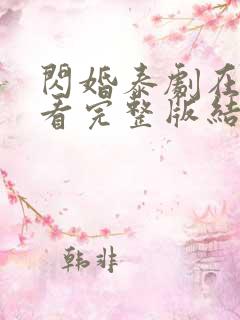 閃婚泰劇在
看完整版結
韩非